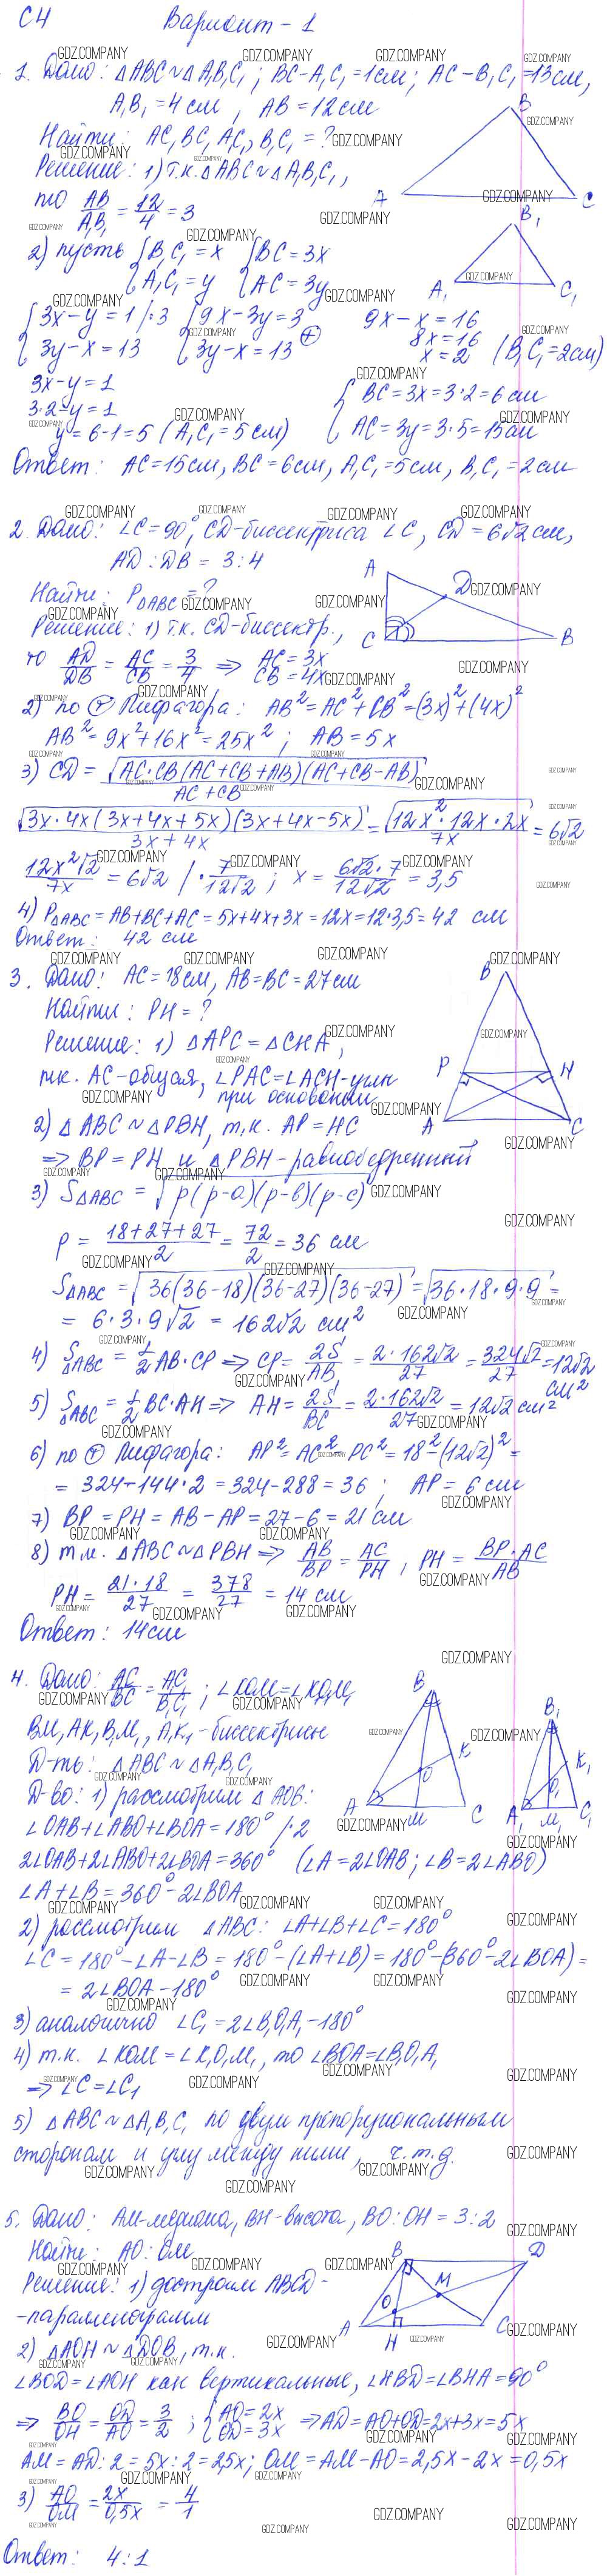 С4 Вариант - 1
1. Дано: ΔABC ~ ΔA₁B₁C₁; BC - A₁C₁ = 1см; AC - B₁C₁ = 13см,
A₁B₁ = 4 см, AB = 12см
Найти: AC, BC, A₁C₁, B₁C₁ = ?
Решение: 1) т.к. ΔABC ~ ΔA₁B₁C₁,
то AB/A₁B₁ = 12/4 = 3
2) пусть { B₁C₁ = x { BC = 3x
{ A₁C₁ = y { AC = 3y
{ 3x - y = 1 /·3 { 9x - 3y = 3 9x - x = 16
{ 3y - x = 13 { 3y - x = 13 ⊕ 8x = 16
x = 2 (B₁C₁ = 2см)
3x - y = 1
3·2 - y = 1 { BC = 3x = 3·2 = 6 см
y = 6 - 1 = 5 (A₁C₁ = 5 см) { AC = 3y = 3·5 = 15 см
Ответ: AC = 15см, BC = 6см, A₁C₁ = 5см, B₁C₁ = 2см
A B C
A₁ B₁ C₁
2. Дано: ∠C = 90°, CD - биссектриса ∠C, CD = 6√2 см,
AD : DB = 3 : 4
Найти: P ΔABC = ?
Решение: 1) т.к. CD - биссектр.,
то AD/DB = AC/CB = 3/4 ⇒ AC = 3x
CB = 4x
A D C B
2) по (т) Пифагора: AB² = AC² + CB² = (3x)² + (4x)²
AB² = 9x² + 16x² = 25x²; AB = 5x
3) CD = √(AC·CB(AC+CB+AB)(AC+CB-AB)) / AC+CB
√(3x·4x(3x+4x+5x)(3x+4x-5x)) / 3x+4x = √(12x²·12x·2x) / 7x = 6√2
12x²√2/7x = 6√2 /·7/12√2; x = 6√2·7/12√2 = 3,5
4) P ΔABC = AB+BC+AC = 5x+4x+3x = 12x = 12·3,5 = 42 см
Ответ: 42 см
3. Дано: AC = 18см, AB = BC = 27см
Найти: PH = ?
Решение: 1) ΔAPC = ΔCHA,
т.к. AC - общая, ∠PAC = ∠ACH - углы
при основании
2) ΔABC ~ ΔPBH, т.к. AP = HC
⇒ BP = PH и ΔPBH - равнобедренный
B P H A C
3) S ΔABC = √(p(p-a)(p-b)(p-c))
p = 18+27+27/2 = 72/2 = 36 см
S ΔABC = √(36(36-18)(36-27)(36-27)) = √(36·18·9·9) =
= 6·3·9√2 = 162√2 см²
4) S ΔABC = 1/2 AB·CP ⇒ CP = 2S/AB = 2·162√2/27 = 324√2/27 = 12√2
см²
5) S ΔABC = 1/2 BC·AH ⇒ AH = 2S/BC = 2·162√2/27 = 12√2 см²
6) по (т) Пифагора: AP² = AC² - PC² = 18² - (12√2)² =
= 324 - 144·2 = 324 - 288 = 36; AP = 6 см
7) BP = PH = AB - AP = 27 - 6 = 21 см
8) т.к. ΔABC ~ ΔPBH ⇒ AB/BP = AC/PH, PH = BP·AC/AB
PH = 21·18/27 = 378/27 = 14 см
Ответ: 14 см
4. Дано: AC/BC = A₁C₁/B₁C₁; ∠KOM = ∠K₁O₁M₁
BM, AK, B₁M₁, A₁K₁ - биссектрисы
Д-ть: ΔABC ~ ΔA₁B₁C₁
Д-во: 1) рассмотрим ΔAOB:
∠OAB + ∠ABO + ∠BOA = 180° /·2
B K O A M C
B₁ K₁ O₁ A₁ M₁ C₁
2∠OAB + 2∠ABO + 2∠BOA = 360° (∠A = 2∠OAB; ∠B = 2∠ABO)
∠A + ∠B = 360° - 2∠BOA
2) рассмотрим ΔABC: ∠A + ∠B + ∠C = 180°
∠C = 180° - ∠A - ∠B = 180° - (∠A + ∠B) = 180° - (360° - 2∠BOA) =
= 2∠BOA - 180°
3) аналогично ∠C₁ = 2∠B₁O₁A₁ - 180°
4) т.к. ∠KOM = ∠K₁O₁M₁, то ∠BOA = ∠B₁O₁A₁
⇒ ∠C = ∠C₁
5) ΔABC ~ ΔA₁B₁C₁ по двум пропорциональным
сторонам и углу между ними, ч.т.д.
5. Дано: AM - медиана, BH - высота, BO : OH = 3 : 2
Найти: AO : OM
Решение: 1) достроим ABCD -
- параллелограмм
B D M O A H C
2) ΔAOH ~ ΔDOB, т.к.
∠BOD = ∠AOH как вертикальные, ∠HBD = ∠BHA = 90°
⇒ BO/OH = OD/AO = 3/2; { AO = 2x { OD = 3x ⇒ AD = AO + OD = 2x + 3x = 5x
AM = AD : 2 = 5x : 2 = 2,5x; OM = AM - AO = 2,5x - 2x = 0,5x
3) AO/OM = 2x/0,5x = 4/1
Ответ: 4 : 1
GDZ.COMPANY